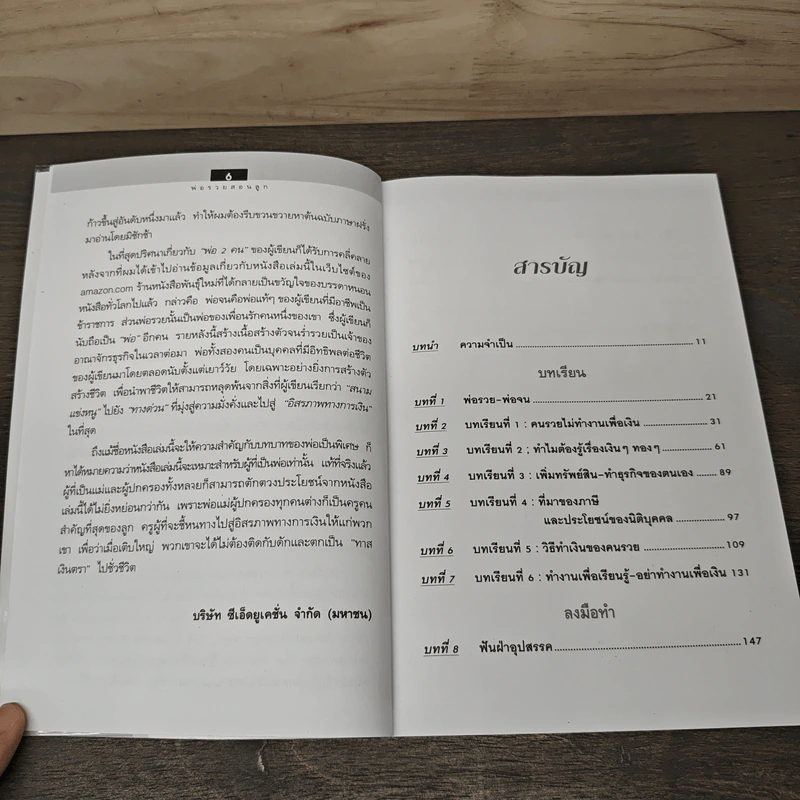 6
พ่อรวยสอนลูก
ก้าวขึ้นสู่อันดับหนึ่งมาแล้ว ทำให้ผมต้องรีบขวนขวายหาต้นฉบับภาษาฝรั่ง
มาอ่านโดยมิชักช้า
ในที่สุดปริศนาเกี่ยวกับ "พ่อ 2 คน" ของผู้เขียนก็ได้รับการคลี่คลาย
หลังจากที่ผมได้เข้าไปอ่านข้อมูลเกี่ยวกับหนังสือเล่มนี้ในเว็บไซต์ของ
amazon.com ร้านหนังสือพันธุ์ใหม่ที่ได้กลายเป็นขวัญใจของบรรดาหนอน
หนังสือทั่วโลกไปแล้ว กล่าวคือ พ่อจนคือพ่อแท้ๆ ของผู้เขียนที่มีอาชีพเป็น
ข้าราชการ ส่วนพ่อรวยนั้นเป็นพ่อของเพื่อนรักคนหนึ่งของเขา ซึ่งผู้เขียนก็
นับถือเป็น "พ่อ" อีกคน รายหลังนี้สร้างเนื้อสร้างตัวจนร่ำรวยเป็นเจ้าของ
อาณาจักรธุรกิจในเวลาต่อมา พ่อทั้งสองคนเป็นบุคคลที่มีอิทธิพลต่อชีวิต
ของผู้เขียนมาโดยตลอดนับตั้งแต่เยาว์วัย โดยเฉพาะอย่างยิ่งการสร้างตัว
สร้างชีวิต เพื่อนำพาชีวิตให้สามารถหลุดพ้นจากสิ่งที่ผู้เขียนเรียกว่า "สนาม
แข่งหนู" ไปยัง "ทางด่วน" ที่มุ่งสู่ความมั่งคั่งและไปสู่ "อิสรภาพทางการเงิน"
ในที่สุด
ถึงแม้ชื่อหนังสือเล่มนี้จะให้ความสำคัญกับบทบาทของพ่อเป็นพิเศษ ก็
หาได้หมายความว่าหนังสือเล่มนี้จะเหมาะสำหรับผู้ที่เป็นพ่อเท่านั้น แท้ที่จริงแล้ว
ผู้ที่เป็นแม่และผู้ปกครองทั้งหลายก็สามารถตักตวงประโยชน์จากหนังสือ
เล่มนี้ได้ไม่ยิ่งหย่อนกว่ากัน เพราะพ่อแม่ผู้ปกครองทุกคนต่างก็เป็นครูคน
สำคัญที่สุดของลูก ครูผู้ที่จะชี้หนทางไปสู่อิสรภาพทางการเงินให้แก่พวก
เขา เพื่อว่าเมื่อเติบใหญ่ พวกเขาจะได้ไม่ต้องติดกับดักและตกเป็น "ทาส
เงินตรา" ไปชั่วชีวิต
บริษัท ซีเอ็ดยูเคชั่น จำกัด (มหาชน)
สารบัญ
บทนำ ความจำเป็น 11
บทเรียน
บทที่ 1 พ่อรวย-พ่อจน 21
บทที่ 2 บทเรียนที่ 1 : คนรวยไม่ทำงานเพื่อเงิน 31
บทที่ 3 บทเรียนที่ 2 ; ทำไมต้องรู้เรื่องเงินๆ ทองๆ 61
บทที่ 4 บทเรียนที่ 3 : เพิ่มทรัพย์สิน-ทำธุรกิจของตนเอง 89
บทที่ 5 บทเรียนที่ 4 : ที่มาของภาษี
และประโยชน์ของนิติบุคคล 97
บทที่ 6 บทเรียนที่ 5 : วิธีทำเงินของคนรวย 109
บทที่ 7 บทเรียนที่ 6 : ทำงานเพื่อเรียนรู้-อย่าทำงานเพื่อเงิน 131
ลงมือทำ
บทที่ 8 ฟันฝ่าอุปสรรค 147